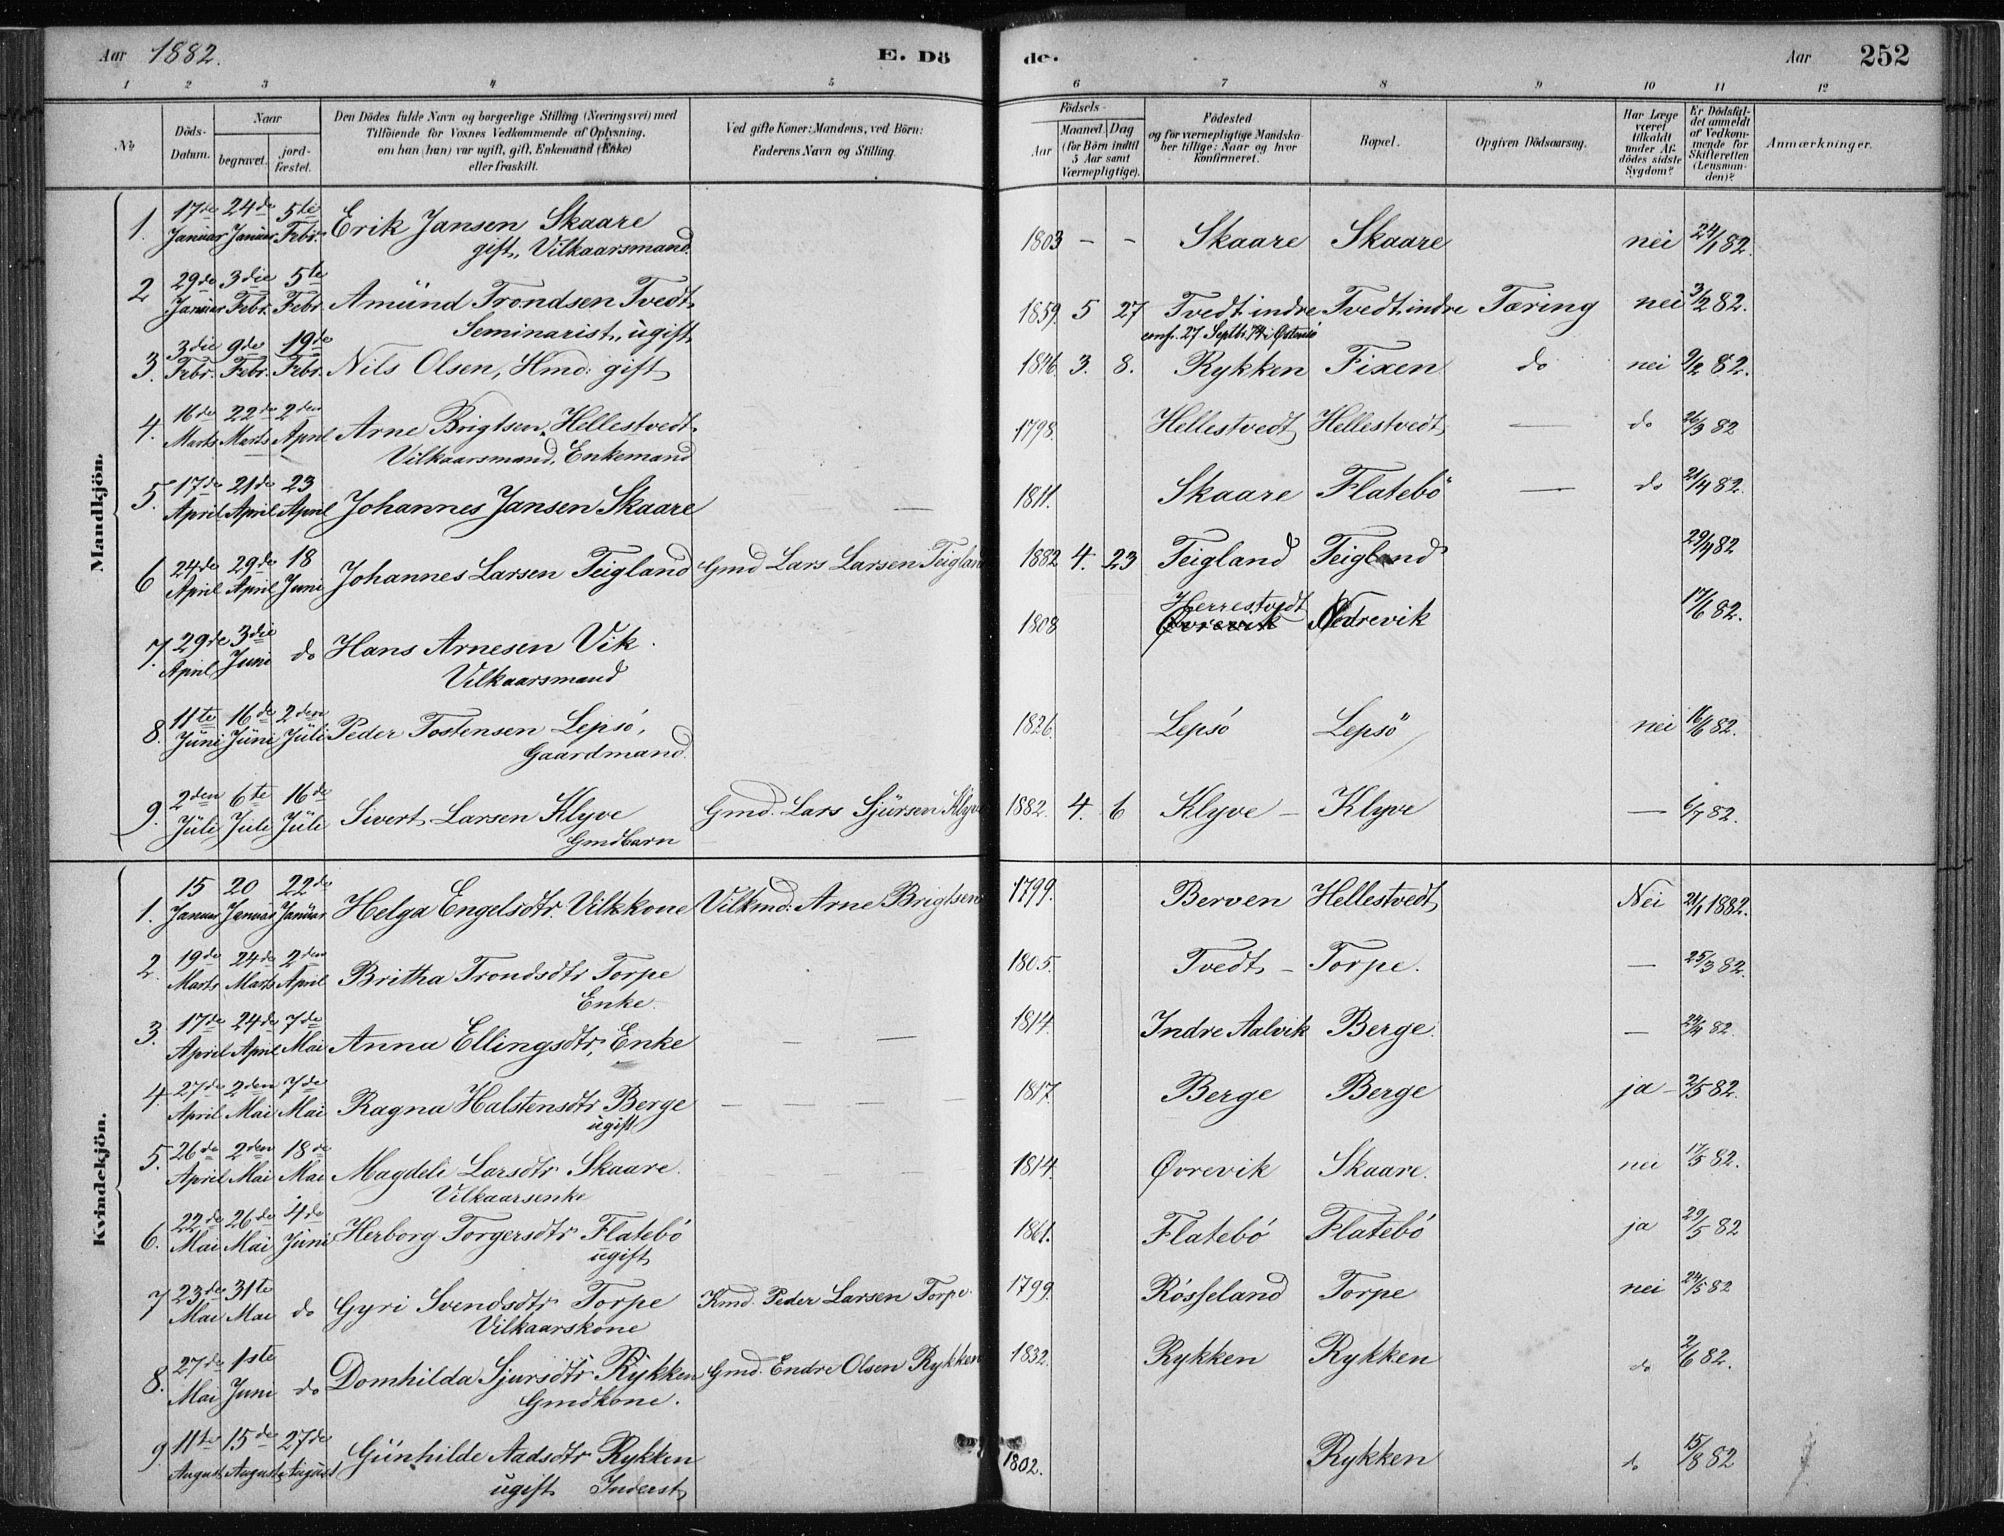 Aar 1882. E. Dö
de. Aar 252
1 2 3 4 5
6 7 8 9 10 11 12
№ Döds-Datum. Naar begravet. jord-fæstet. Den Dödes fulde Navn og borgerlige Stilling (Næringsvei) med Tilföiende for Voxnes Vedkommende af Oplysning, om han (hun) var ugift, gift, Enkemand (Enke) eller fraskilt. Ved gifte Koner: Mandens, ved Börn: Faderens Navn og Stilling.
Födsels- Aar Maaned Dag (for Börn indtil 5 Aar samt Værnepligtige). Födested og for værnepligtige Mandska-ber tillige: Naar og hvor Konfirmeret. Bopæl. Opgiven Dödsaarsag. Har Læge været tilkaldt under Af-dödes sidste Sygdom? Er Dödsfal-det anmeldt af Vedkom-mende for Skifteretten (Lensman-den)? Anmærkninger.
Mandkjön.
1. 17de Januar 24de Januar 5te Febr. Erik Jansen Skaare 1803 - - Skaare Skaare nei 24/1 82.
gift, Vilkaarsmand.
2 29de Januar 3die Febr. 5te Febr. Amünd Trondsen Tvedt 1859. 5 27 Tvedt indre Tvedt indre Tæring nei 3/2 82.
Seminarist, ugift conf. 27 Septbr 74 i Østensö
3. 3die Febr. 9de Febr. 19de Febr. Nils Olsen, Hmd. gift 1846. 3. 8. Rykken Fixen do nei 9/2 82.
4. 16de Marts 22de Marts 2den April Arne Brigtsen Hellestvedt 1798. Hellestvedt Hellestvedt — do 26/3 82
Vilkaarsmand, Enkemand
5. 17de April 21de April 23 April Johannes Jansen Skaare — 1811. Skaare Flatebö — do 21/4 82.
6 24de April 29de April 18 Juni Johannes Larsen Teigland Gmd Lars Larsen Teigland 1882 4. 23 Teigland Teigland 29/4 82
Herrestvedt
7. 29de April 3die Juni do Hans Arnesen Vik. 1808 Øvrevik Nedrevik 17/6 82.
Vilkaarsmand
8. 11te Jüni 16de Jüni 2den Jüli Peder Tostensen Lepsö, 1826. Lepsö Lepsö nei 16/6 82.
Gaardmand.
9. 2den Jüli 6te Juli 16de Jüli Sivert Larsen Klyve Gmd. Lars Sjürsen Klyve 1882. 4. 6 Klyve - Klyve — 6/7 82.
Gmdbarn
Kvindekjön.
1. 15 Januar 20 Januar 22de Januar Helga Engelsdtr. Vilkkone Vilkmd: Arne Brigtsen 1799. Berven Hellestvedt Nei 21/1 1882.
2. 19de Marts 24de Marts 2den April Britha Trondsdtr Torpe 1805. Tvedt - Torpe. — 25/3 82.
Enke.
3. 17de April 24de April 7de Mai Anna Ellingsdtr, Enke — — 1814. Indre Aalvik Berge. — 24/4 82.
4. 27de April 2den Mai 7de Mai Ragna Halstensdtr Berge — — — — 1817. Berge Berge ja - 2/5 82.
ugift
5. 26de April 2den Mai 18de Mai Magdeli Larsdtr Skaare. 1814. Øvrevik Skaare. nei 17/5 82.
Vilkaarsenke
6. 22de Mai 26de Mai 4de Juni Herborg Torgersdtr Flatebö 1861. Flatebö Flatebö ja 29/5 82
ugift
7 23de Mai 31te Mai do Gyri Svendsdtr Torpe Kmd. Peder Larsen Torpe. 1799. Rösseland Torpe nei 24/5 82
Vilkaarskone
8. 27de Mai 1ste Juni do Domhilda Sjursdtr Rykken Gmd. Endre Olsen Rykken 1832. Rykken Rykken do 2/6 82.
Gmdkone.
9 11te August 15de August 27de August Günhilde Aadsdtr Rykken 1802. Rykken do 15/8 82
ugift Inderst